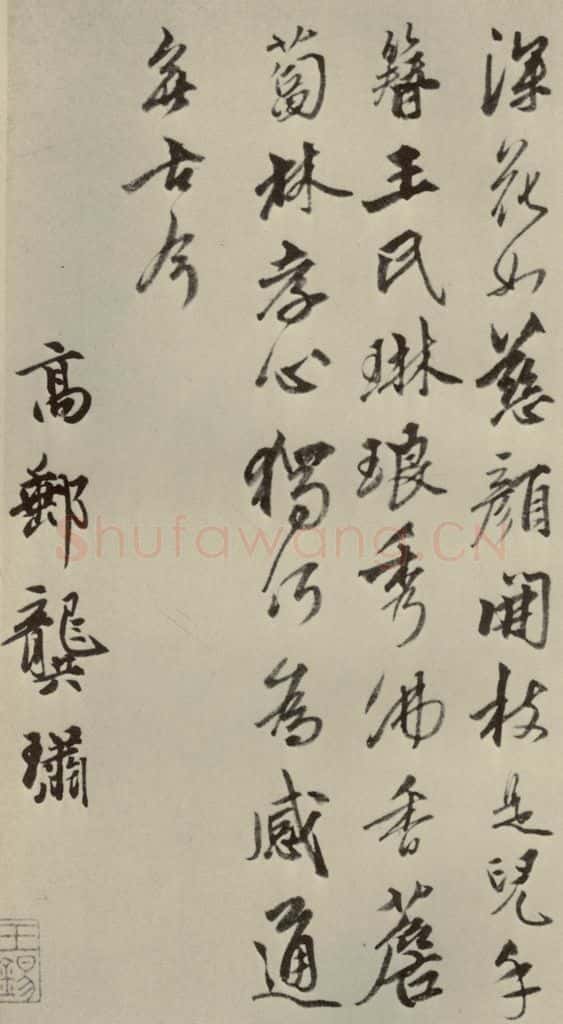 深花如慈顏開枝是兒手
簪王氏琳琅秀佛香薝
蔔林孝心獨何為感通
無古今
高郵龔璛
shufawang.CN
王錫